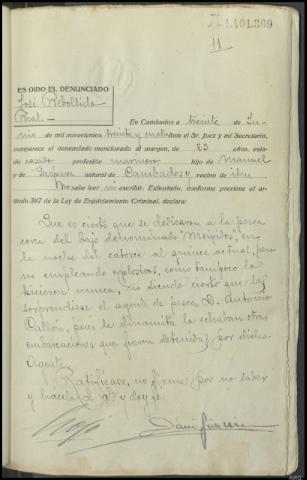 1.401.369
11
ES OIDO EL DENUNCIADO
José Rebollido
Rial.-
En Cambados a treinta de Ju-
nio de mil novecientos treinta y cuatro Ante el Sr. Juez y mi Secretario,
comparece el denunciado mencionado al margen, de 23 años, esta-
do casado profesión marinero hijo de Manuel
y de natural de Cambados y vecino de idem
No sabe leer ni escribir. Exhortado, conforme previene el ar-
tículo 387 de la Ley de Enjuiciamiento Criminal, declara:
Que es cierto que se dedicaron a la pesca
cerca del bajo denominado en
la noche del catorce al quince actual, pero
no empleando explosivos, como tampoco lo
hicieron nunca, no siendo cierto que los
sorprendiese el agente de pesca D. Antonio
pues la dinamita la echaban otras
embarcaciones que fueron detenidas por dicho
Agente.
Ratifícase, no firma por no saber
y hácelo S. Sª y doy fé.